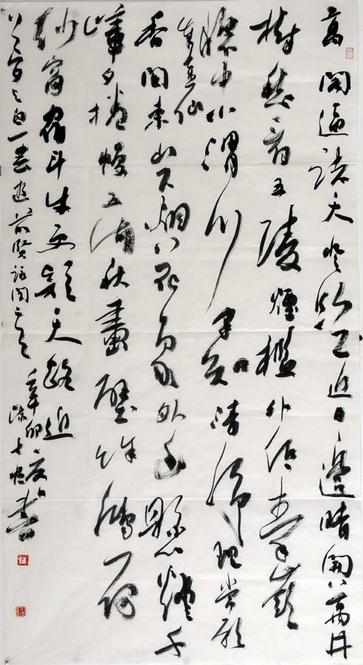 高閣逼諸天登臨近日邊晴開萬井
樹愁看五陵煙檻外低秦嶺
窗中小渭川早知清淨理常願
奉金仙
香閣東山下烟花象外幽懸燈千
嶂夕捲幔五湖秋畫壁餘鴻雁
紗窗宿斗牛更疑天路近
白雲遊前賢詩
辛卯書